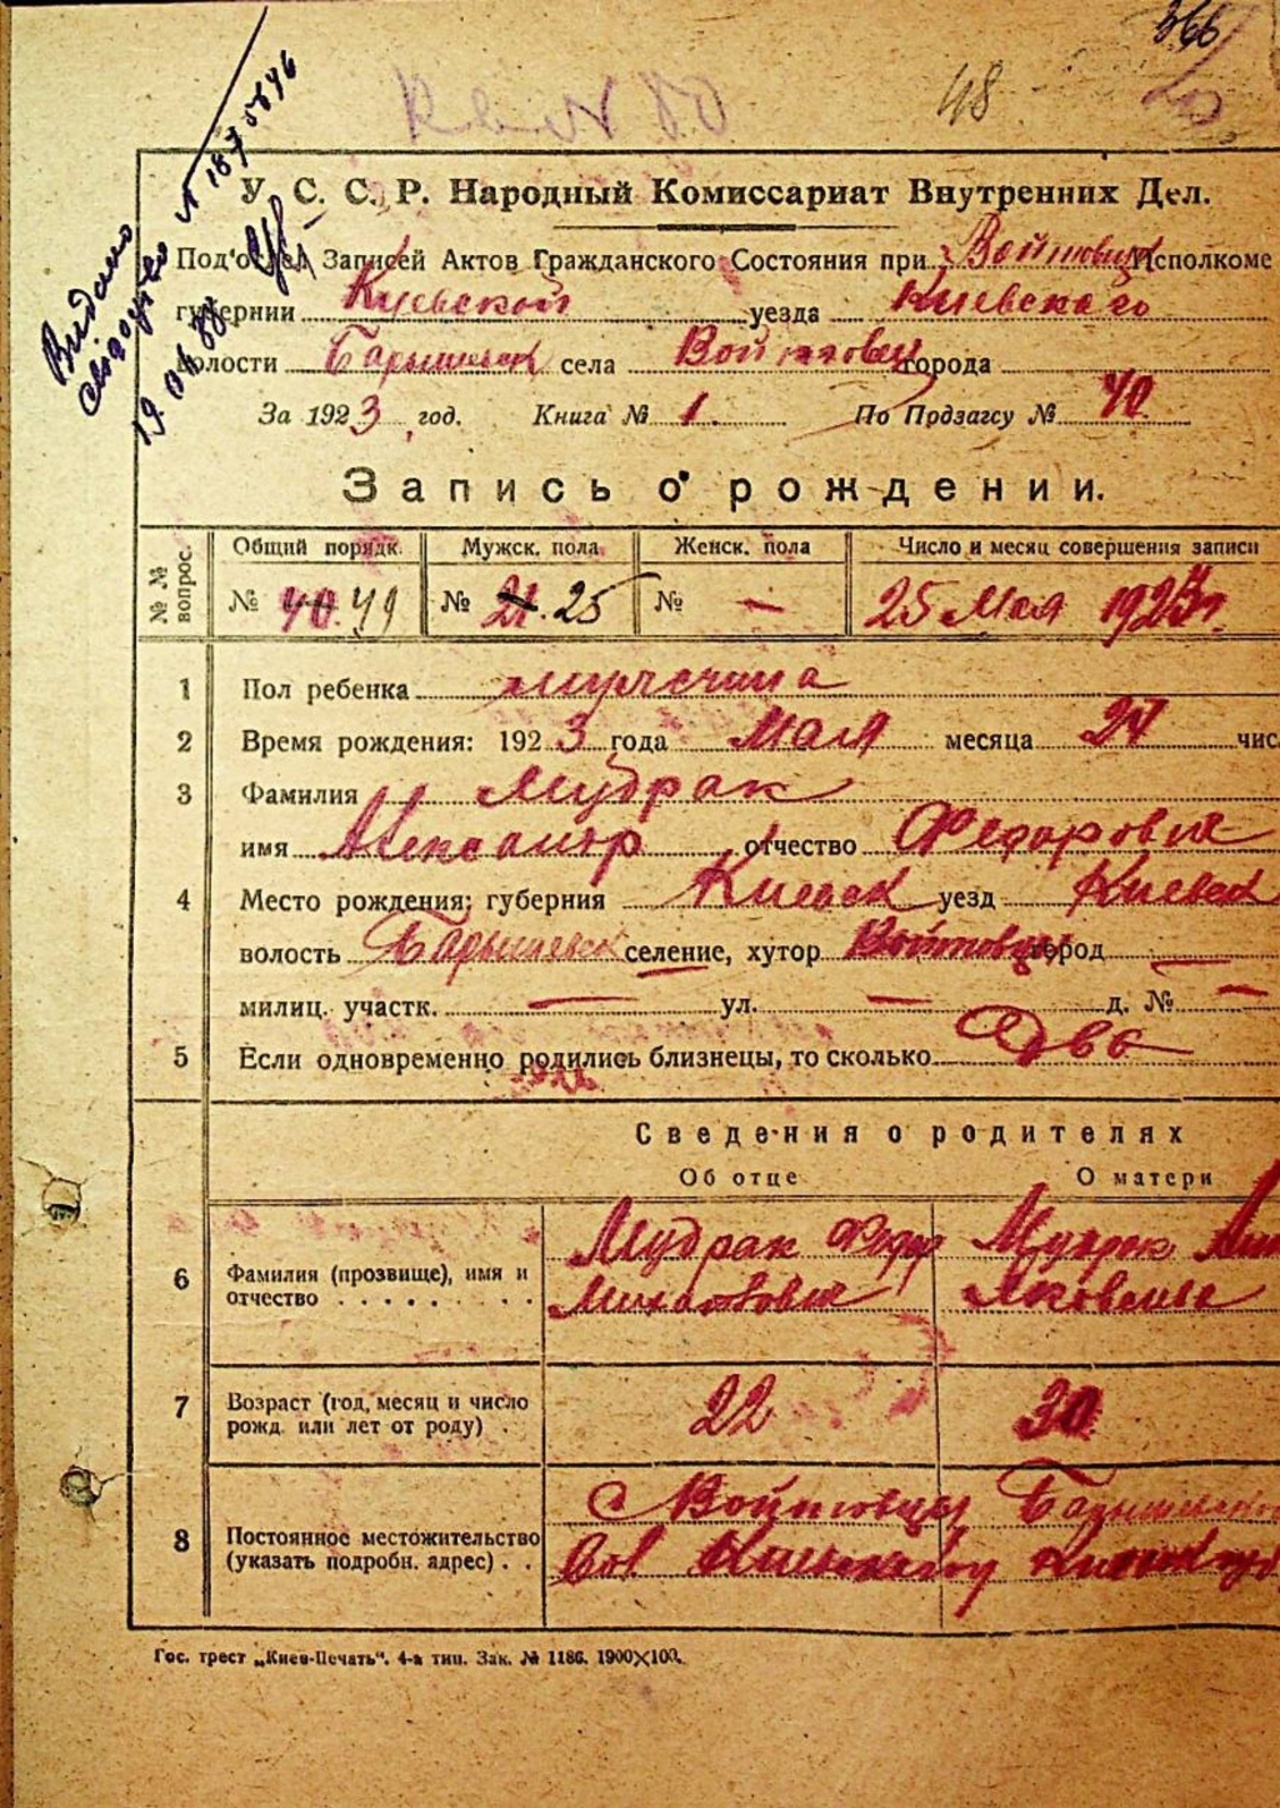 366
48
Кв № 80
Видано
свідоцтво № 187
У. С. С. Р. Народный Комиссариат Внутренних Дел.
Под'отдел Записей Актов Гражданского Состояния при Войтовец Исполкоме
губернии Киевской уезда Киевского
волости Барышевск села Войтовец города
За 1923 год. Книга № 1. По Прдзагсу № 40.
Запись о рождении.
№ № вопрос. Общий порядк. Мужск. пола Женск. пола Число и месяц совершения записи
№ 40. 49 № 21. 25 № — 25 Мая 1923 г.
1 Пол ребенка мужчина
2 Время рождения: 1923 года Мая месяца 24 чис
3 Фамилия Мудрак
имя Александр отчество Федорович
4 Место рождения: губерния Киевск уезд Киевск
волость Барышевск селение, хутор Войтовцы город —
милиц. участк. — ул. — д. № —
5 Если одновременно родились близнецы, то сколько Два
Сведения о родителях
Об отце О матери
6 Фамилия (прозвище), имя и отчество Мудрак Федор Михайлович Мудрак Яковлевна
7 Возраст (год, месяц и число рожд. или лет от роду) 22 30
8 Постоянное местожительство (указать подробн. адрес) С Войтовцы Барышевской
Вол.
Гос. трест „Киев-Печать“. 4-я тип. Зак. № 1186. 1900×100.